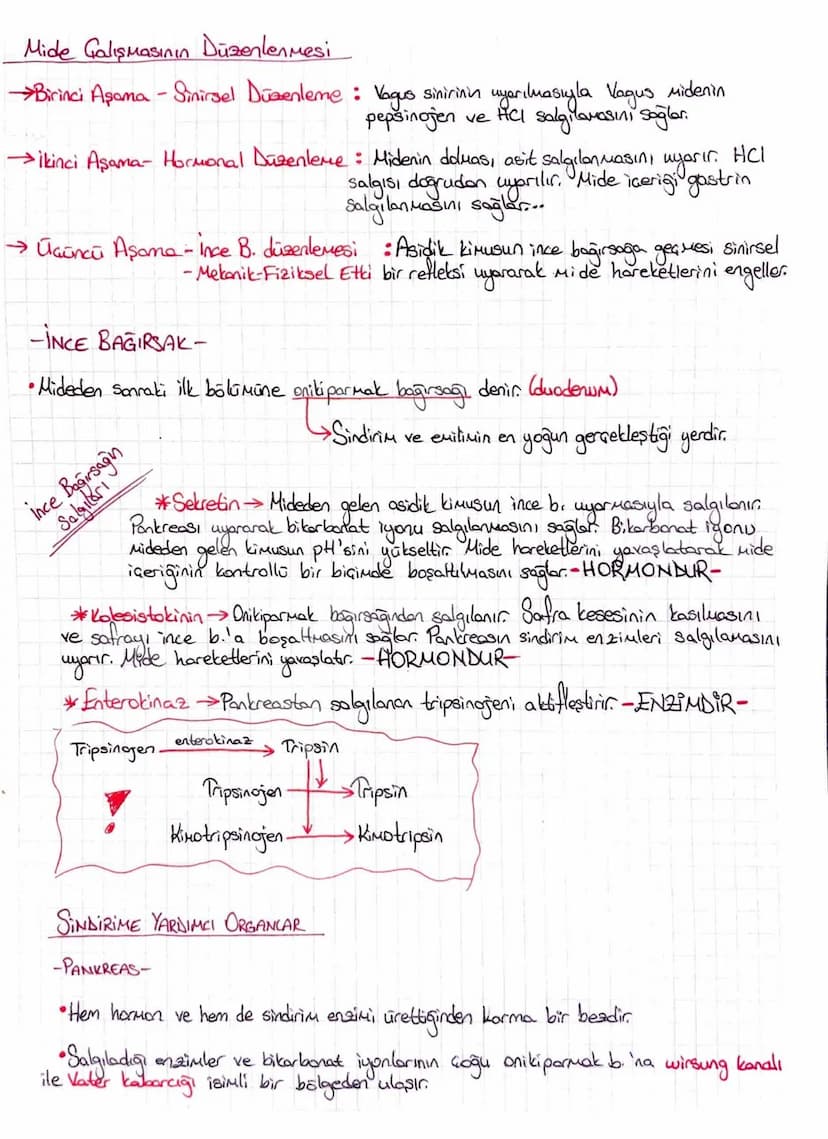 Mide Çalışmasının Düzenlenmesi
→Birinci Aşama - Sinirsel Düzenleme : Vagus sinirinin uyarılmasıyla Vagus midenin
pepsinojen ve HCl salgılamasını sağlar.
→İkinci Aşama- Hormonal Düzenleme : Midenin dolması, asit salgılanmasını uyarır. HCl
salgısı doğrudan uyarılır. Mide içeriği gastrin
salgılanmasını sağlar...
→ Üçüncü Aşama - İnce B. düzenlemesi : Asidik kimusun ince bağırsağa geçmesi sinirsel
- Mekanik-Fiziksel Etki bir refleksi uyararak mide hareketlerini engeller.
-İNCE BAĞIRSAK-
• Mideden sonraki ilk bölümüne onikiparmak bağırsağı denir. (duodenum)
→Sindirim ve emilimin en yoğun gerçekleştiği yerdir.
İnce Bağırsağın
Salgıları
*Sekretin→ Mideden gelen asidik kimusun ince b. uyarmasıyla salgılanır.
Pankreası uyararak bikarbonat iyonu salgılanmasını sağlar. Bikarbonat iyonu
mideden gelen kimusun pH'sini yükseltir. Mide hareketlerini yavaşlatarak mide
içeriğinin kontrollü bir biçimde boşaltılmasını sağlar.-HORMONDUR-
*Kolesistokinin→ Onikiparmak bağırsağından salgılanır. Safra kesesinin kasılmasını
ve safrayı ince b.'a boşaltmasını sağlar. Pankreasın sindirim enzimleri salgılamasını
uyarır. Mide hareketlerini yavaşlatır. -HORMONDUR-
*Enterokinaz →Pankreastan salgılanan tripsinojeni aktifleştirir.-ENZİMDİR-
Tripsinojen enterokinaz → Tripsin
Tripsinojen → Tripsin
!
Kimotripsinojen → Kimotripsin
SİNDİRİME YARDIMCI ORGANLAR
-PANKREAS-
•Hem hormon ve hem de sindirim enzimi ürettiğinden karma bir bezdir.
•Salgıladığı enzimler ve bikarbonat iyonlarının çoğu onikiparmak b.'na wirsung kanalı
ile Vater kabarcığı isimli bir bölgeden ulaşır.